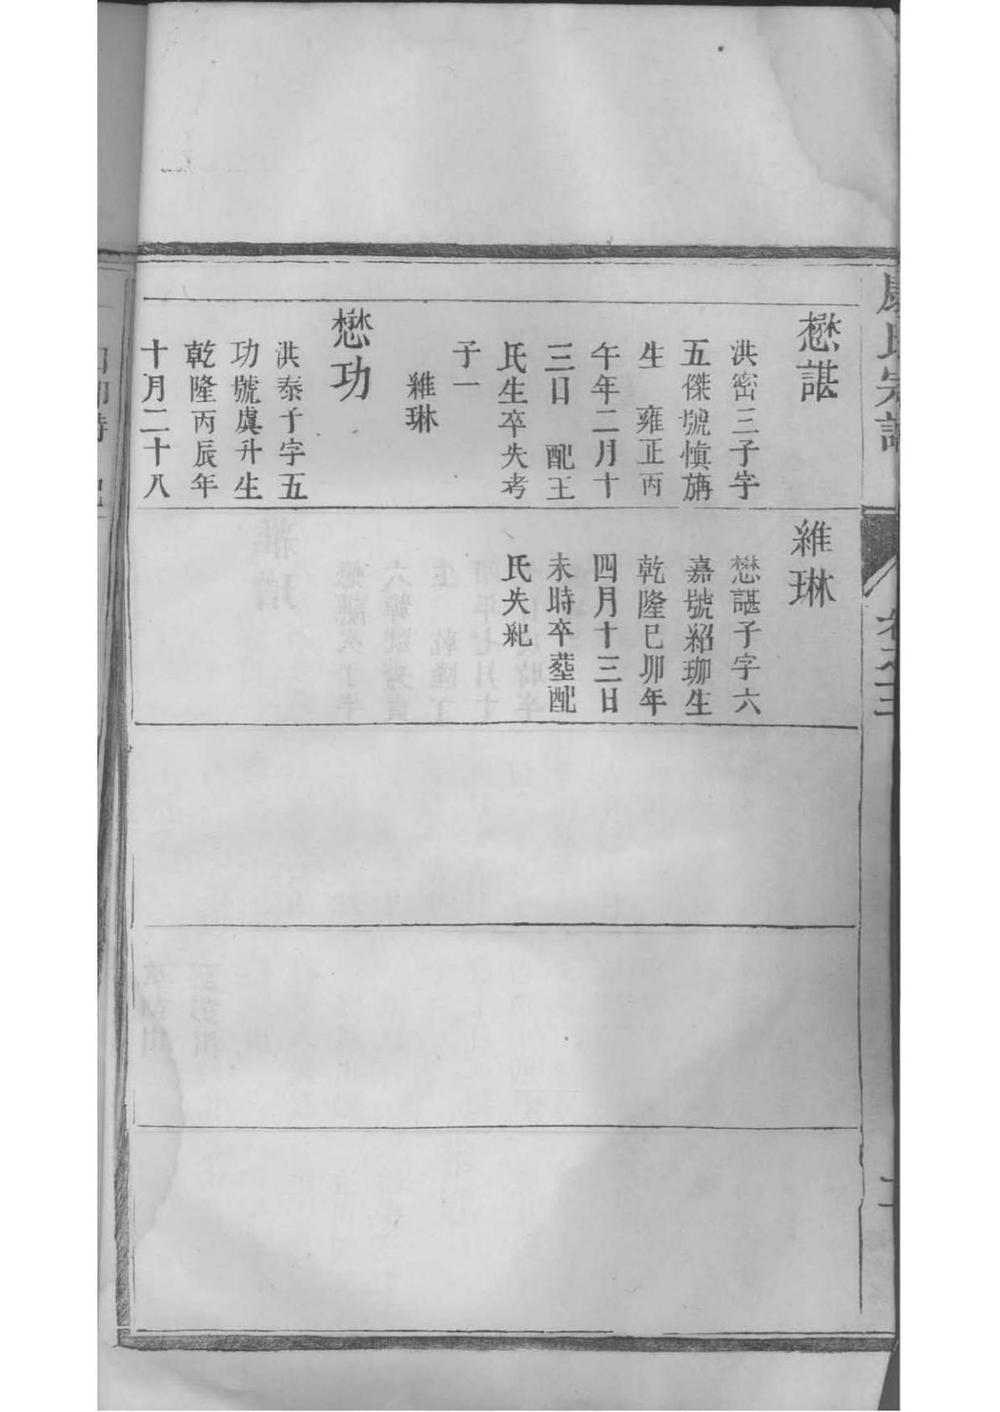 懋諶
洪密三子字
五傑號慎旃
生　雍正丙
午年二月十
三日　配王
氏生卒失考
子一
維琳
懋功
洪泰子字五
功號虞升生
乾隆丙辰年
十月二十八
維琳
懋諶子字六
嘉號紹珈生
乾隆巳卯年
四月十三日
未時卒塟配
氏失紀
氏宗譜
卷之三